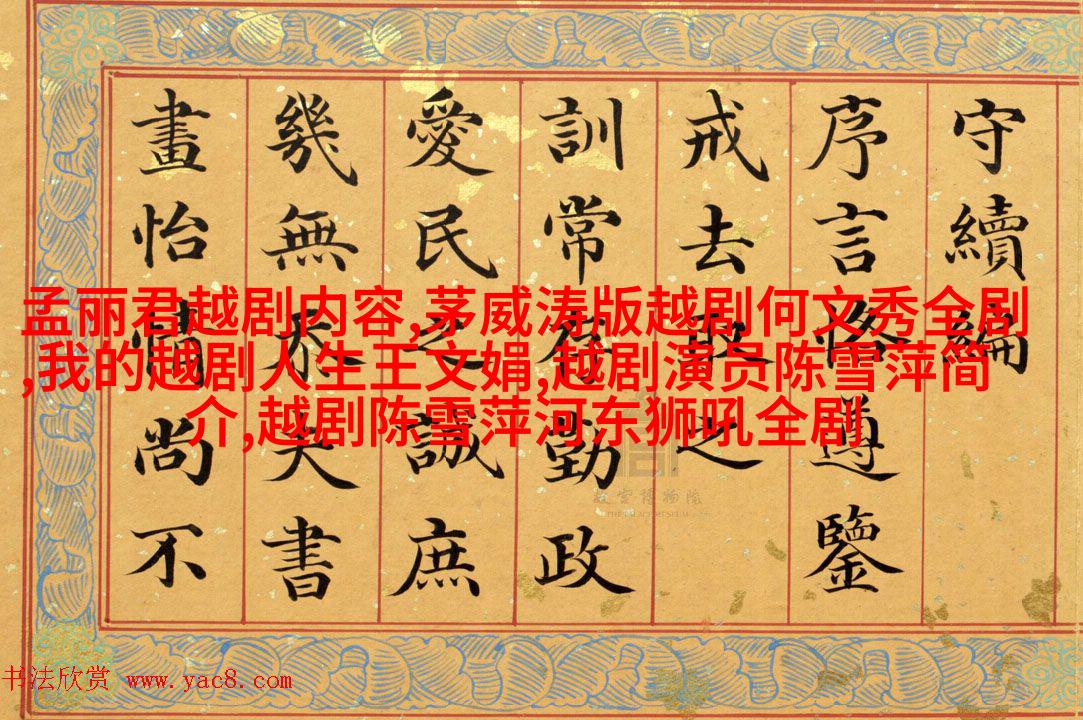 守續編
序言恪遵鑒
戒去取之
訓常存勤政
愛民之誠庶
幾無忝夫書
畫怡情尚不
孟丽君越剧内容,茅威涛版越剧何文秀全剧
,我的越剧人生王文娟,越剧演员陈雪萍简
介,越剧陈雪萍河东狮吼全剧
故宫博物院
THE PALACE MUSEUM
书法欣赏 www.yac8.com